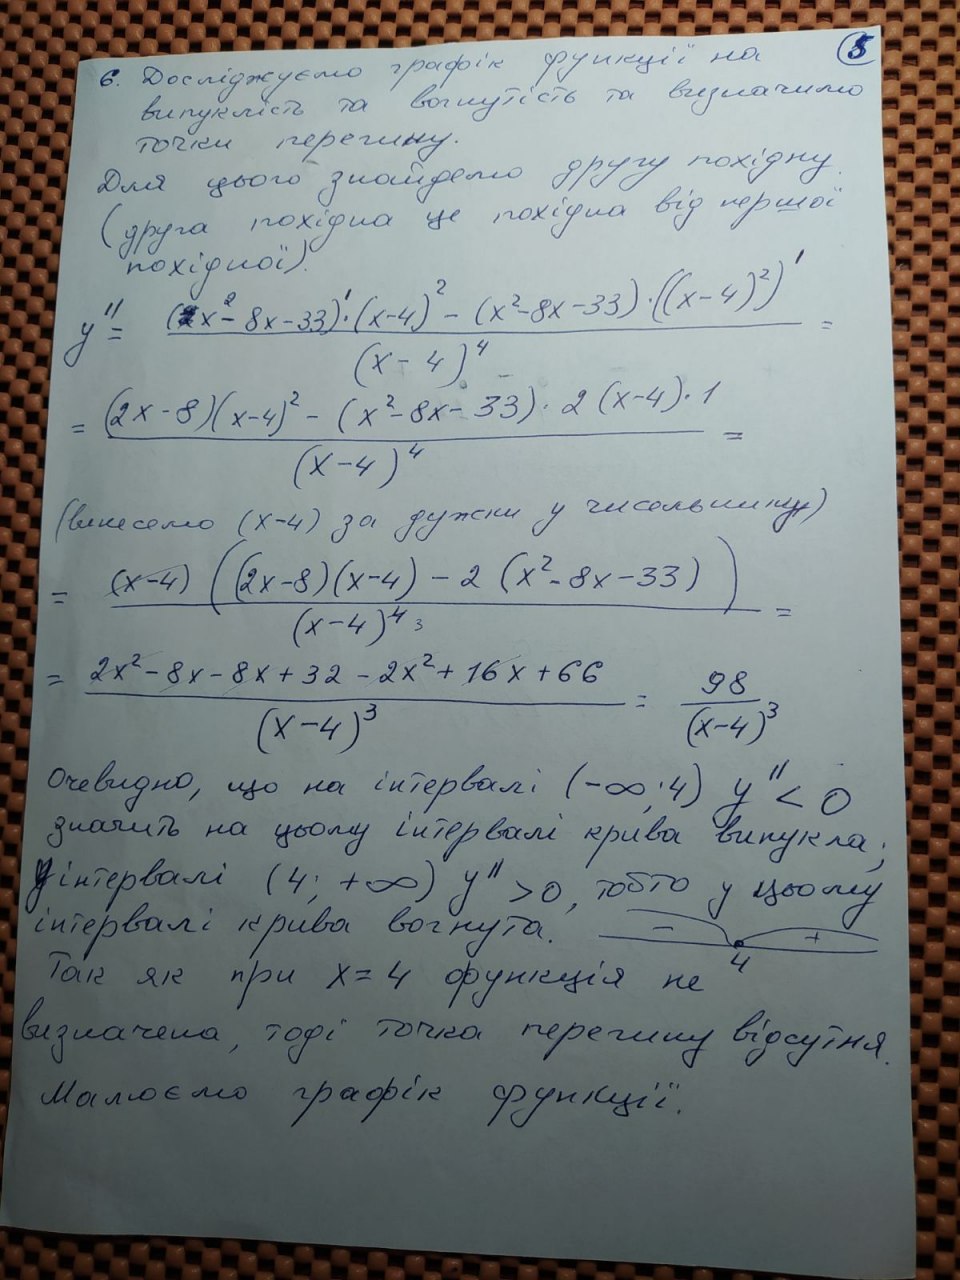 5
6. Досліджуємо графік функції на
випуклість та вогнутість та визначимо
точки перегину.
Для цього знайдемо другу похідну
(друга похідна це похідна від першої
похідної).
y'' = ((x² - 8x - 33)' · (x - 4)² - (x² - 8x - 33) · ((x - 4)²)') / (x - 4)⁴ =
= ((2x - 8)(x - 4)² - (x² - 8x - 33) · 2 (x - 4) · 1) / (x - 4)⁴ =
(винесемо (x - 4) за дужки у чисельнику)
= (x - 4) ((2x - 8)(x - 4) - 2 (x² - 8x - 33)) / (x - 4)⁴ ³ =
= (2x² - 8x - 8x + 32 - 2x² + 16x + 66) / (x - 4)³ = 98 / (x - 4)³
Очевидно, що на інтервалі (-∞; 4) y'' < 0
значить на цьому інтервалі крива випукла;
У інтервалі (4; +∞) y'' > 0, тобто у цьому
інтервалі крива вогнута. - + 4
Так як при x = 4 функція не
визначена, тоді точка перегину відсутня.
Малюємо графік функції.